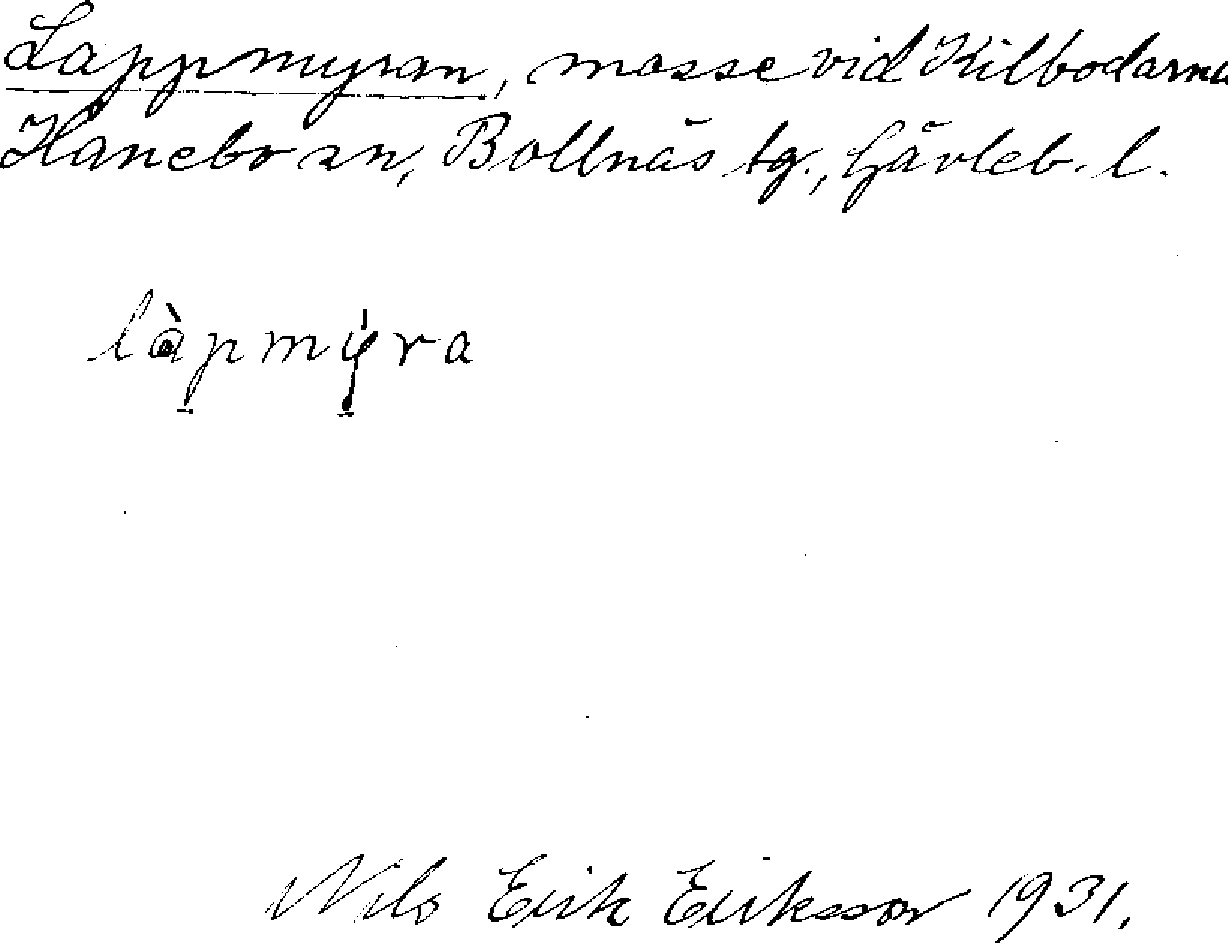 Lappmyran, mosse vid Kilbodarna
Hanebo sn, Bollnäs tg., Gävleb. l.
làpmýra
Nils Erik Eriksson 1931.